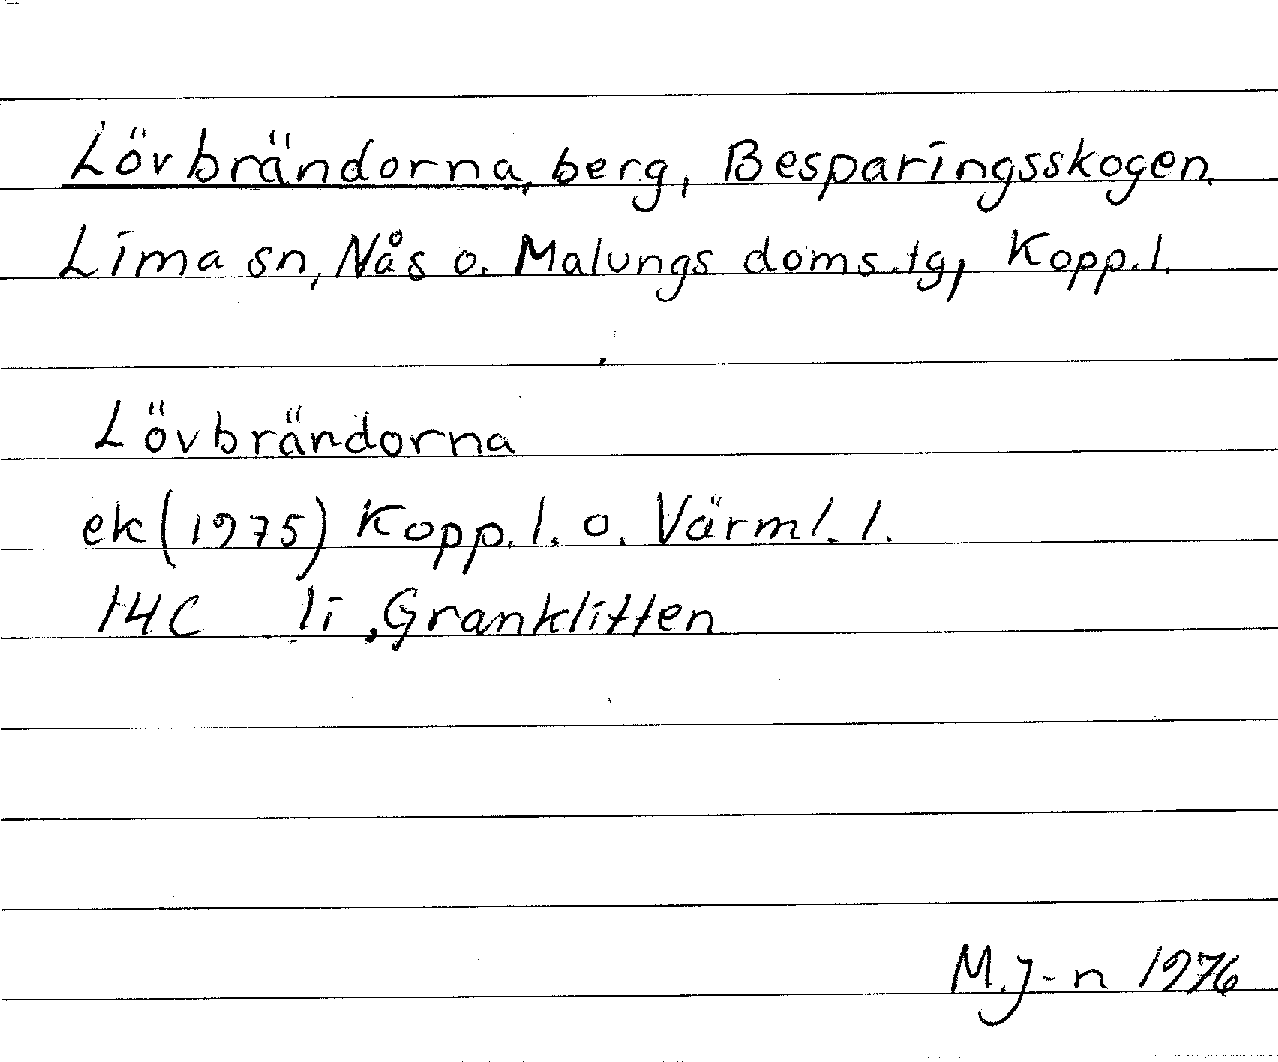 Lövbrändorna, berg, Besparingsskogen,
Lima sn, Nås o. Malungs doms.tg, Kopp.l.
Lövbrändorna
ek (1975) Kopp.l. o. Värml.l.
14C li, Granklitten
M.J-n 1976